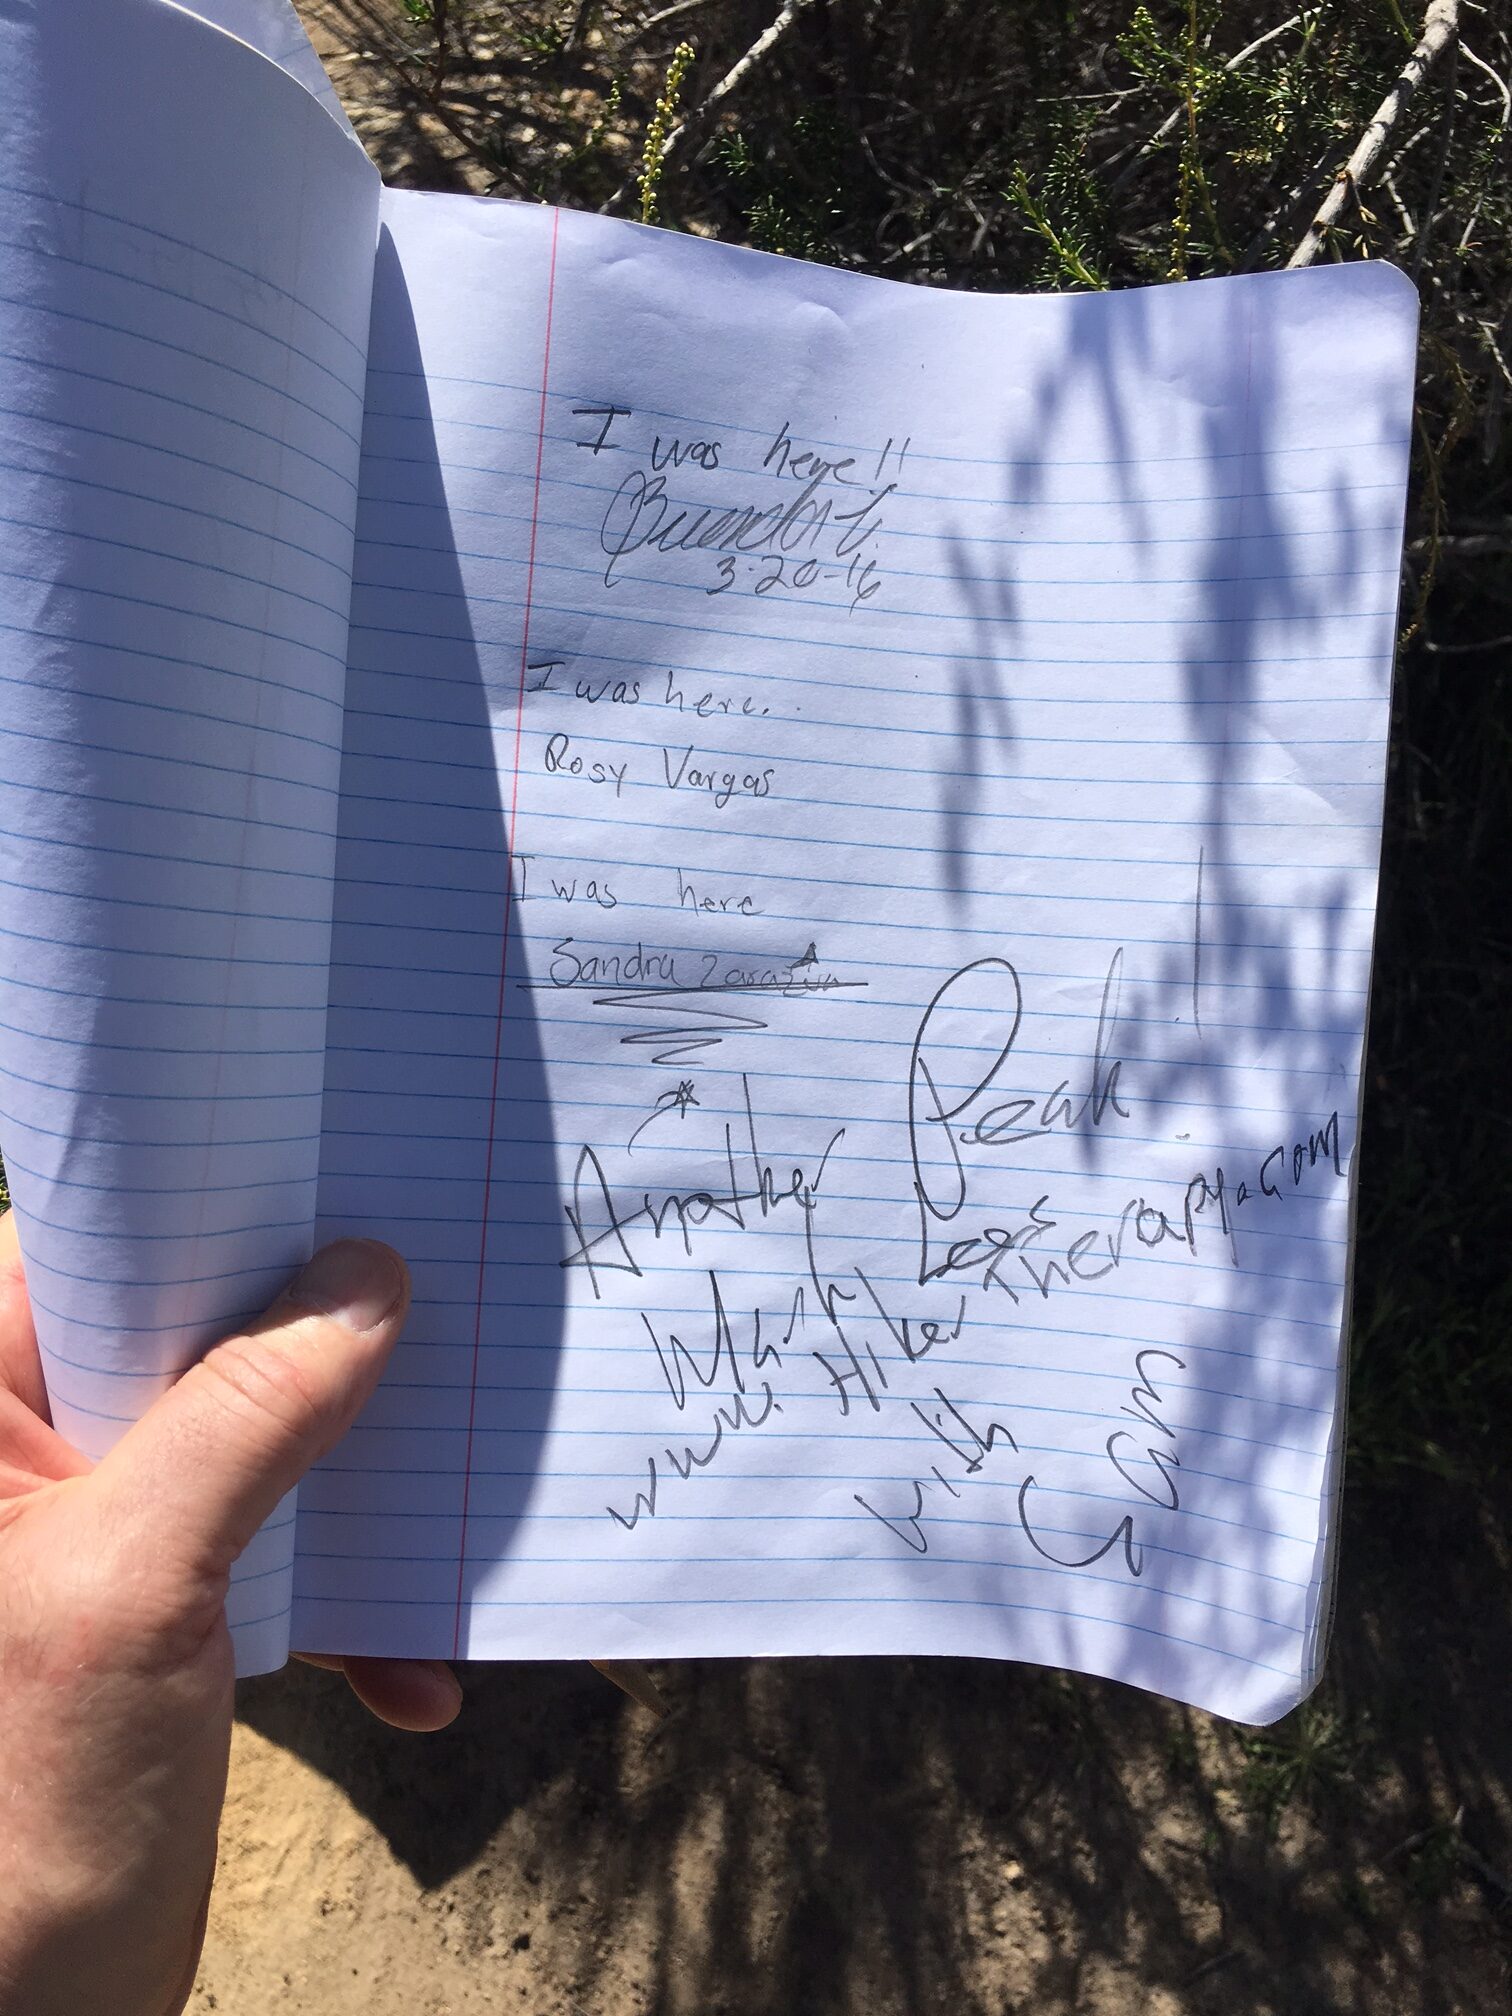 I was here!!
3-20-16
I was here.
Rosy Vargas
I was here
Sandra
Another Peak!
Mark Legs
www. Hiker Therapy.com
with
Cam